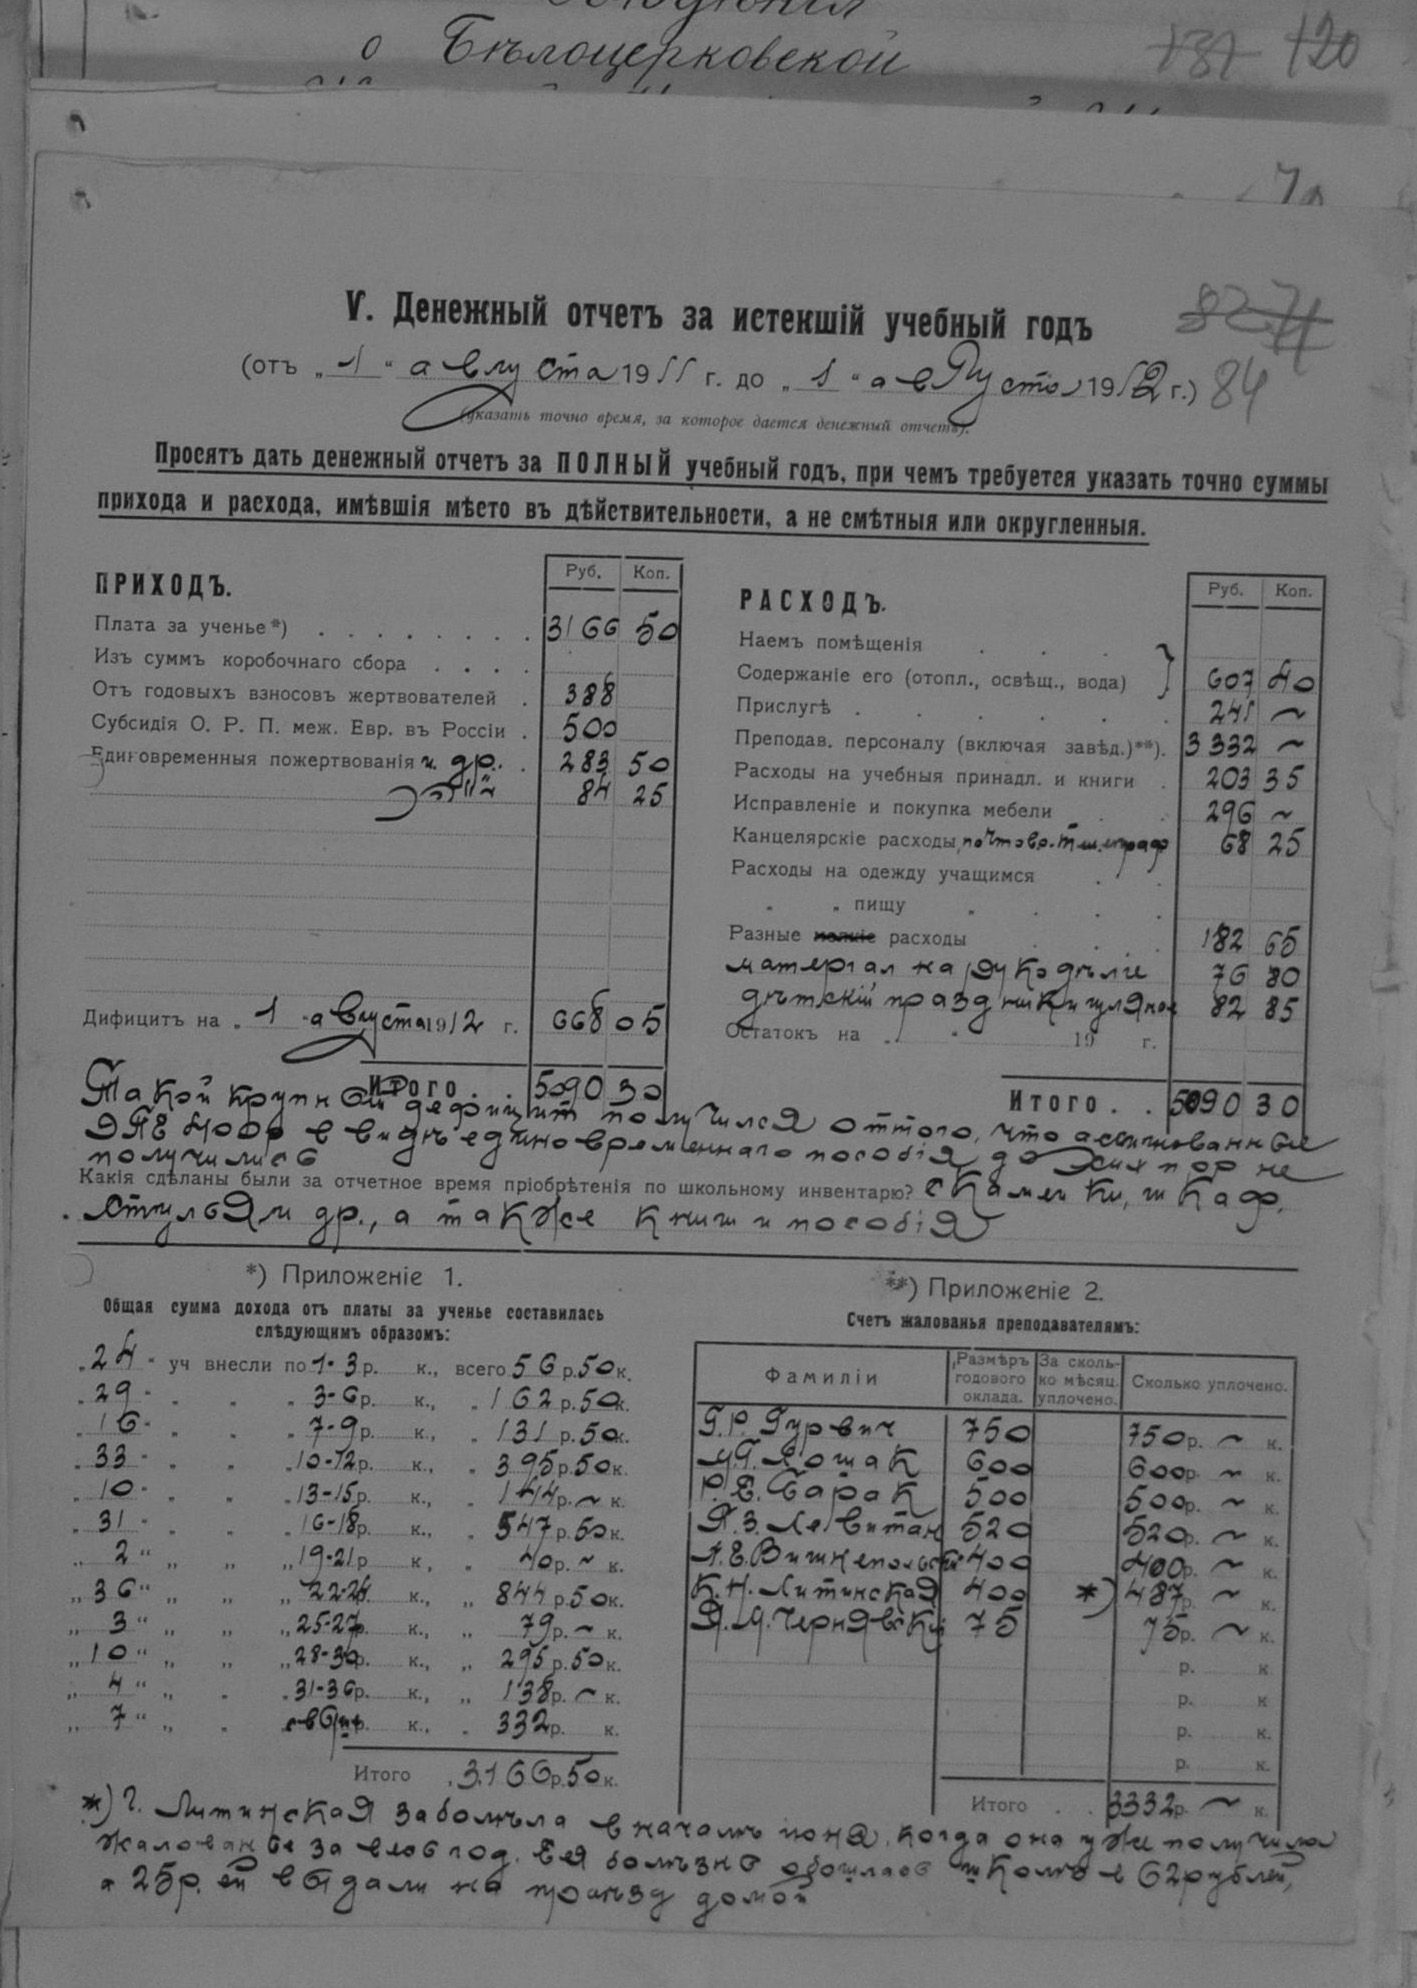 о Бѣлоцерковской
131 120
V. Денежный отчетъ за истекшій учебный годъ
82 71
(отъ „1“ августа 1911 г. до „1“ августа 1912 г.) 84
(указать точно время, за которое дается денежный отчетъ).
Просятъ дать денежный отчетъ за ПОЛНЫЙ учебный годъ, при чемъ требуется указать точно суммы
прихода и расхода, имѣвшія мѣсто въ дѣйствительности, а не смѣтныя или округленныя.
ПРИХОДЪ. Руб. Коп.
Плата за ученье*) 3166 50
Изъ суммъ коробочнаго сбора
Отъ годовыхъ взносовъ жертвователей 388
Субсидія О. Р. П. меж. Евр. въ Россіи 500
Единовременныя пожертвованія и др. 283 50
84 25
Дифицитъ на „1“ августа 1912 г. 668 05
Итого 5090 30
РАСХОДЪ. Руб. Коп.
Наемъ помѣщенія
Содержаніе его (отопл., освѣщ., вода) } 607 40
Прислугѣ 241 ~
Преподав. персоналу (включая завѣд.)**) 3332 ~
Расходы на учебныя принадл. и книги 203 35
Исправленіе и покупка мебели 296 ~
Канцелярскіе расходы, почтово-телеграф 68 25
Расходы на одежду учащимся
„ „ пищу „
Разные мелкіе расходы 182 65
матеріал на рукодѣліе 76 80
дѣтскій праздник и гулянье 82 85
Остатокъ на „ “ 19 г.
Итого 5090 30
Такой крупный дефицит получился оттого, что ассигнованные
ЭПЕ 400р в видѣ единовременнаго пособія до сих пор не
получились
Какія сдѣланы были за отчетное время пріобрѣтенія по школьному инвентарю? скамейки, шкаф,
стулья и др., а также книги и пособія
*) Приложеніе 1.
Общая сумма дохода отъ платы за ученье составилась
слѣдующимъ образомъ:
„24“ уч внесли по 1-3 р. к., всего 56 р. 50 к.
„29“ „ „ „ 3-6 р. к., „ 162 р. 50 к.
„16“ „ „ „ 7-9 р. к., „ 131 р. 50 к.
„33“ „ „ „ 10-12 р. к., „ 395 р. 50 к.
„10“ „ „ „ 13-15 р. к., „ 144 р. ~ к.
„31“ „ „ „ 16-18 р. к., „ 547 р. 50 к.
„2“ „ „ „ 19-21 р к, „ 40 р. ~ к.
„36“ „ „ „ 22-24 р. к., „ 844 р. 50 к.
„3“ „ „ „ 25-27 р. к., „ 79 р. ~ к.
„10“ „ „ „ 28-30 р. к., „ 295 р. 50 к.
„4“ „ „ „ 31-36 р. к., „ 138 р. ~ к.
„7“ „ „ свыше р. к., „ 332 р. к.
Итого „3166 р. 50 к.
**) Приложеніе 2.
Счетъ жалованья преподавателямъ:
Фамиліи Размѣръ годового оклада. За сколь-ко мѣсяц. уплочено. Сколько уплочено.
Г.Р. Гурвич 750 750 р. ~ к.
М.Г. Лошак 600 600 р. ~ к.
Р.Е. Барак 500 500 р. ~ к.
Я.З. Левитан 520 520 р. ~ к.
А.Е. Вишнепольский 400 400 р. ~ к.
К.Н. Литинская 400 *) 487 р. ~ к.
Я.М. Чернявский 75 75 р. ~ к.
р. к
р. к
р. к.
р. к.
Итого 3332 р. ~ к.
*) Г. Литинская заболѣла в началѣ іюня, когда она уже получила
жалованье за весь год. Ея болѣзнь обошлась школѣ в 62 рублей,
а 25р. ей выдали на проѣзд домой